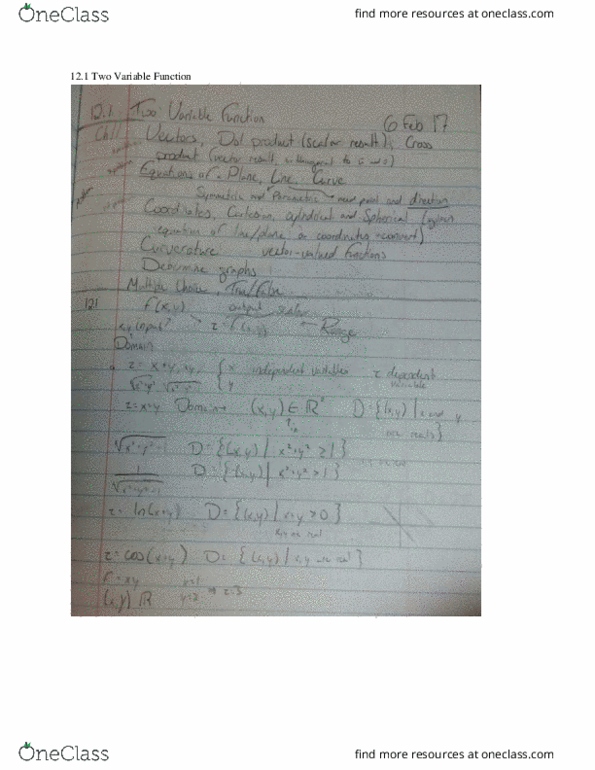 OneClass
find more resources at oneclass.com
12.1 Two Variable Function
12.1 Two Variable Function 6 Feb 17
Ch 11 Vectors, Dot product (scalar result), Cross
product (vector result, orthogonal to
Equations of Plane, Line, Curve
Symmetric and Parametric need point and direction
Coordinates, Cartesian, cylindrical and Spherical (given
equation of line/plane or coordinates convert)
Curverature vector-valued functions
Determine graphs
Multiple Choice, True/False
12.1 f(x,y) output scalar
x,y input z = f(x,y) ← Range
Domain
z = x+y, xy, { x y independent variables z dependent variable
z = x+y Domain (x,y) ∈ ℝ² D = {(x,y) | x and y
are reals}
√x²+y²-1 D = {(x,y) | x²+y² ≥ 1}
1/√x²+y²-1 D = {(x,y) | x²+y² > 1}
z = ln(x+y) D = {(x,y) | x+y > 0}
x,y are real
z = cos(x+y) D = {(x,y) | x,y are real}
x=1
(x,y) ℝ y=2 ⇒ z=3
OneClass
find more resources at oneclass.com